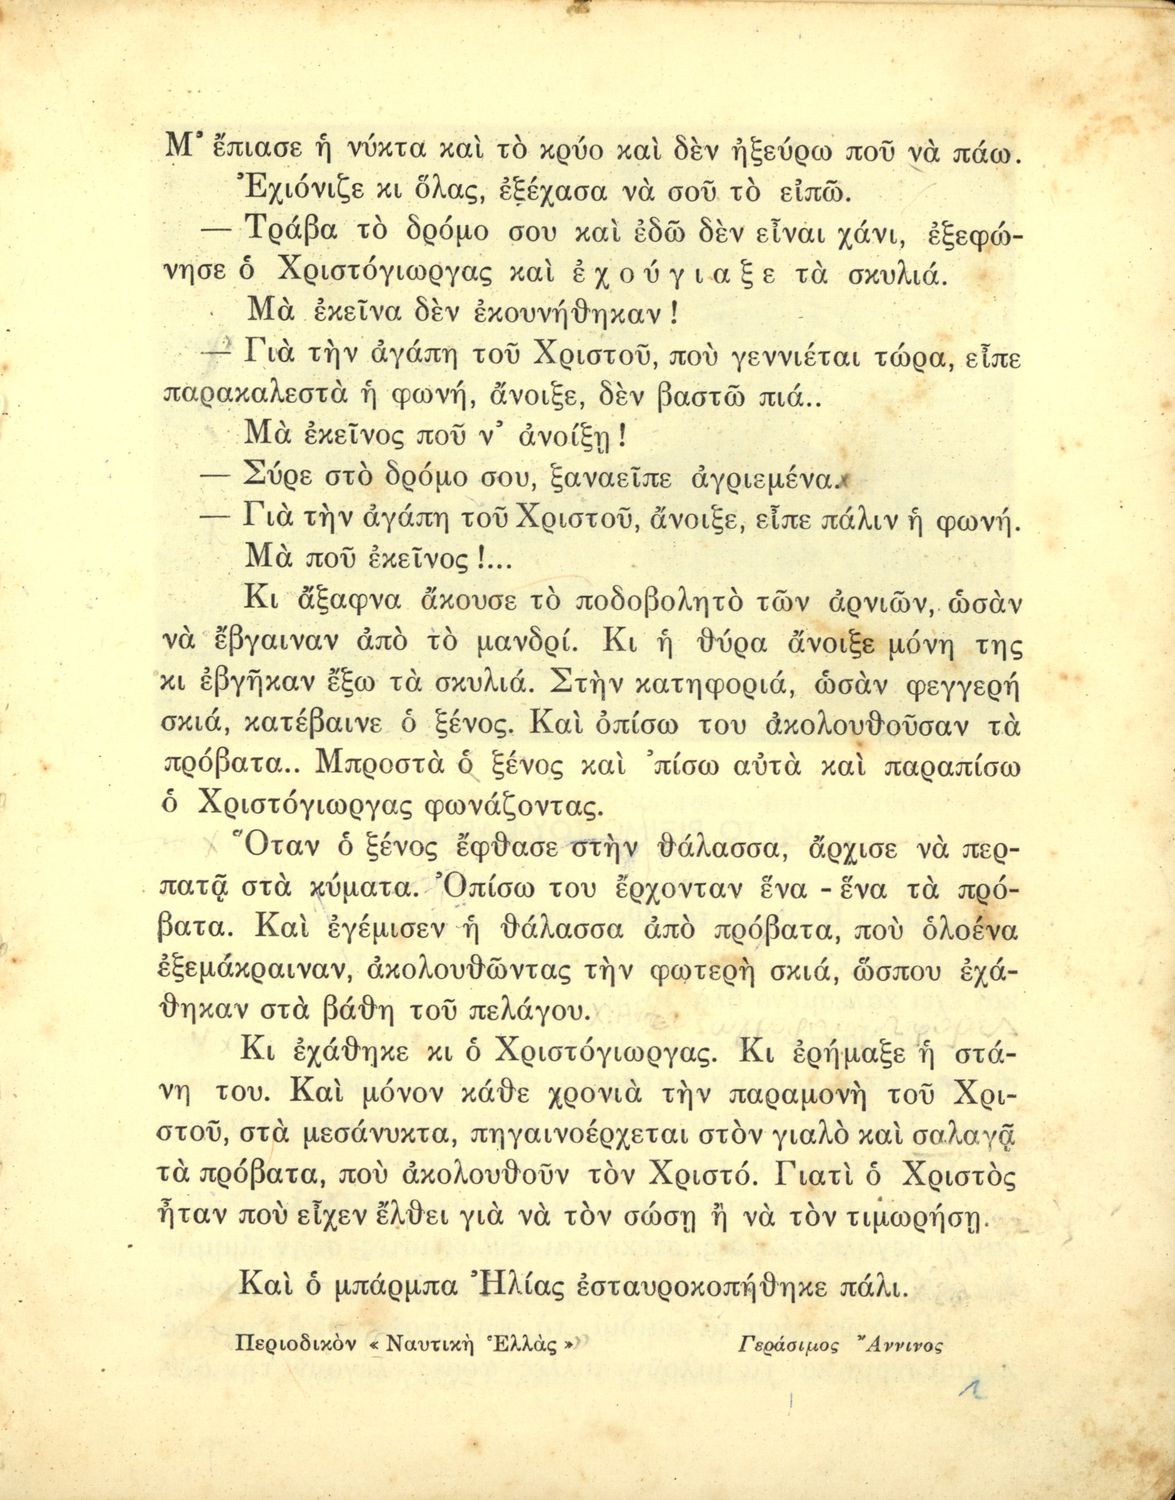 Μ᾿ ἔπιασε ἡ νύκτα καὶ τὸ κρύο καὶ δὲν ἠξεύρω ποῦ νὰ πάω.
Ἐχιόνιζε κι ὅλας, ἐξέχασα νὰ σοῦ τὸ εἰπῶ.
— Τράβα τὸ δρόμο σου καὶ ἐδῶ δὲν εἶναι χάνι, ἐξεφώ-
νησε ὁ Χριστόγιωργας καὶ ἐ χ ο ύ γ ι α ξ ε τὰ σκυλιά.
Μὰ ἐκεῖνα δὲν ἐκουνήθηκαν !
— Γιὰ τὴν ἀγάπη τοῦ Χριστοῦ, ποὺ γεννιέται τώρα, εἶπε
παρακαλεστὰ ἡ φωνή, ἄνοιξε, δὲν βαστῶ πιά..
Μὰ ἐκεῖνος ποῦ ν᾿ ἀνοίξῃ !
— Σύρε στὸ δρόμο σου, ξαναεῖπε ἀγριεμένα.
— Γιὰ τὴν ἀγάπη τοῦ Χριστοῦ, ἄνοιξε, εἶπε πάλιν ἡ φωνή.
Μὰ ποῦ ἐκεῖνος !...
Κι ἄξαφνα ἄκουσε τὸ ποδοβολητὸ τῶν ἀρνιῶν, ὡσὰν
νὰ ἔβγαιναν ἀπὸ τὸ μανδρί. Κι ἡ θύρα ἄνοιξε μόνη της
κι ἐβγῆκαν ἔξω τὰ σκυλιά. Στὴν κατηφοριά, ὡσὰν φεγγερή
σκιά, κατέβαινε ὁ ξένος. Καὶ ὀπίσω του ἀκολουθοῦσαν τὰ
πρόβατα.. Μπροστὰ ὁ ξένος καὶ ᾿πίσω αὐτὰ καὶ παραπίσω
ὁ Χριστόγιωργας φωνάζοντας.
Ὅταν ὁ ξένος ἔφθασε στὴν θάλασσα, ἄρχισε νὰ περ-
πατᾷ στὰ κύματα. Ὀπίσω του ἔρχονταν ἕνα - ἕνα τὰ πρό-
βατα. Καὶ ἐγέμισεν ἡ θάλασσα ἀπὸ πρόβατα, ποὺ ὁλοένα
ἐξεμάκραιναν, ἀκολουθῶντας τὴν φωτερὴ σκιά, ὥσπου ἐχά-
θηκαν στὰ βάθη τοῦ πελάγου.
Κι ἐχάθηκε κι ὁ Χριστόγιωργας. Κι ἐρήμαξε ἡ στά-
νη του. Καὶ μόνον κάθε χρονιὰ τὴν παραμονὴ τοῦ Χρι-
στοῦ, στὰ μεσάνυκτα, πηγαινοέρχεται στὸν γιαλὸ καὶ σαλαγᾷ
τὰ πρόβατα, ποὺ ἀκολουθοῦν τὸν Χριστό. Γιατὶ ὁ Χριστὸς
ἦταν ποὺ εἶχεν ἔλθει γιὰ νὰ τὸν σώσῃ ἢ νὰ τὸν τιμωρήσῃ.
Καὶ ὁ μπάρμπα Ἠλίας ἐσταυροκοπήθηκε πάλι.
Περιοδικὸν « Ναυτικὴ Ἑλλὰς » Γεράσιμος Ἄννινος